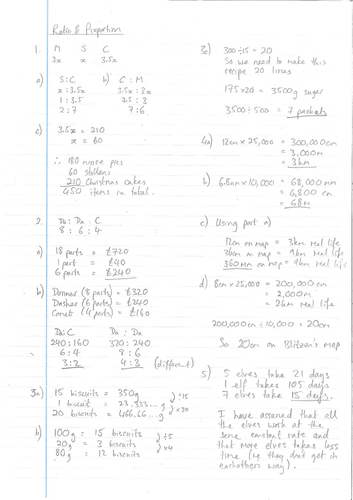 Ratio & Proportion
1. M S C
3x x 3.5x
a) S:C
x : 3.5x
1 : 3.5
2 : 7
b) C : M
3.5x : 3x
3.5 : 3
7 : 6
c) 3.5x = 210
x = 60
∴ 180 mince pies
60 stollens
210 Christmas cakes
450 items in total.
2. Do : Da : C
8 : 6 : 4
a) 18 parts = £720
1 part = £40
6 parts = £240
b) Donner (8 parts) = £320
Dasher (6 parts) = £240
Comet (4 parts) = £160
Da:C Do : Da
240:160 320 : 240
6:4 8 : 6
3:2 4 : 3 (different)
3a) 15 biscuits = 350g
1 biscuit = 23.333...g
20 biscuits = 466.66...g
÷15
×20
b) 100g = 15 biscuits
20g = 3 biscuits
80g = 12 biscuits
÷5
×4
3c) 300 ÷ 15 = 20
So we need to make this
recipe 20 times
175 × 20 = 3500g sugar
3500 ÷ 500 = 7 packets
4a) 12cm × 25,000 = 300,000cm
= 3,000m
= 3km
b) 6.8mm × 10,000 = 68,000mm
= 6,800 cm
= 68m
c) Using part a)
12cm on map = 3km real life
36cm on map = 9km real life
360mm on map = 9km real life
d) 8cm × 25,000 = 200,000cm
= 2,000m
= 2km real life
200,000cm ÷ 10,000 = 20cm
So 20cm on Blitzen's map
5) 5 elves take 21 days
1 elf takes 105 days
7 elves take 15 days.
I have assumed that all
the elves work at the
same constant rate and
that more elves takes less
time (ie they don't get in
eachothers way).